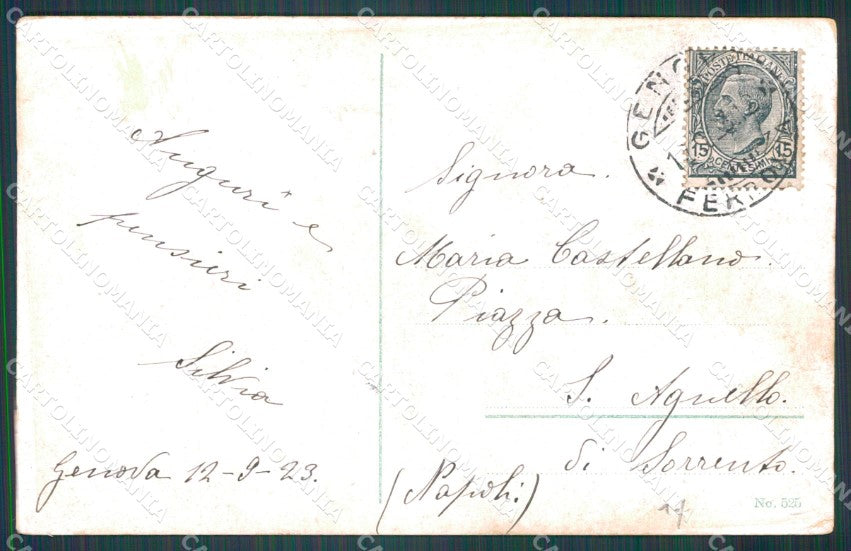 Auguri e
pensieri
Silvia
Genova 12-9-23.
GENOVA
FERROVIA
POSTE ITALIANE
15 CENTESIMI 15
Signora.
Maria Castellano.
Piazza.
S. Agnello.
di Sorrento.
(Napoli)
No. 525
CARTOLINOMANIA